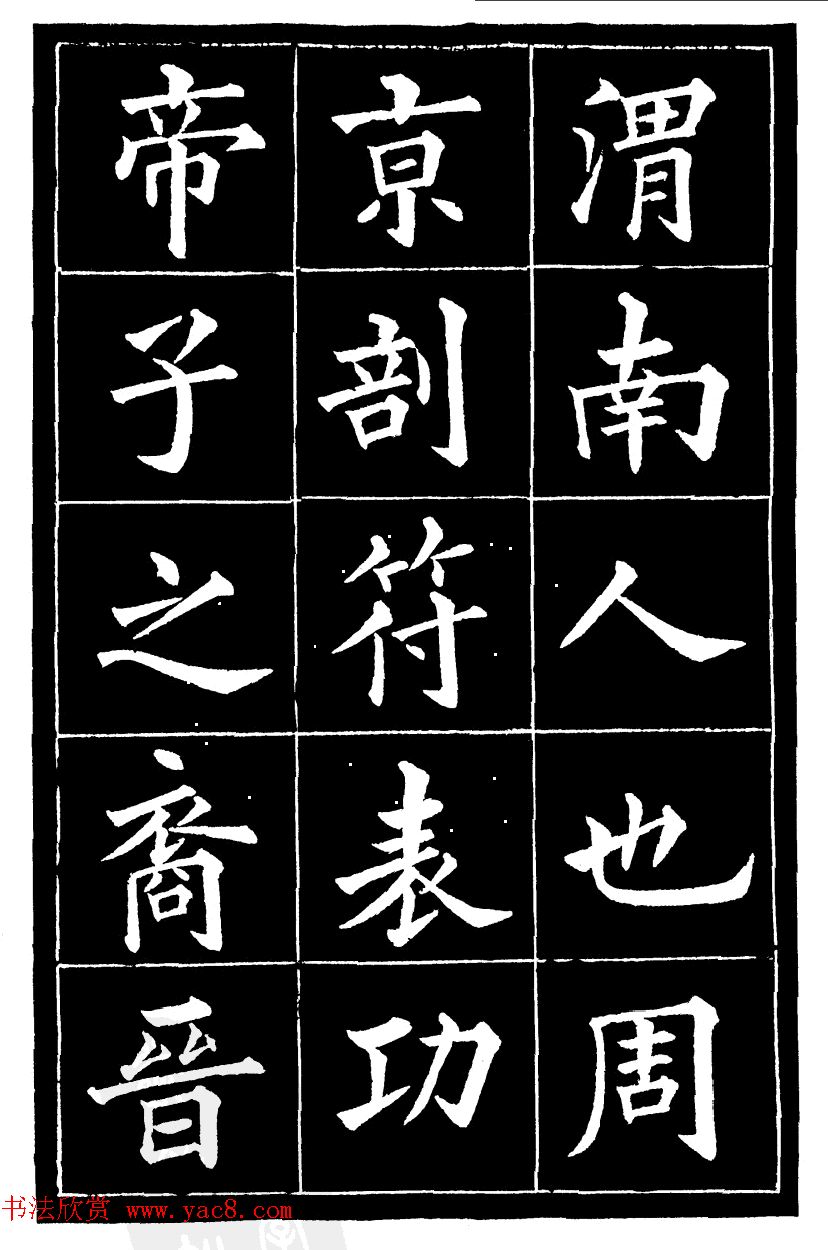 渭南人也周
京剖符表功
帝子之裔晉
书法欣赏 www.yac8.com